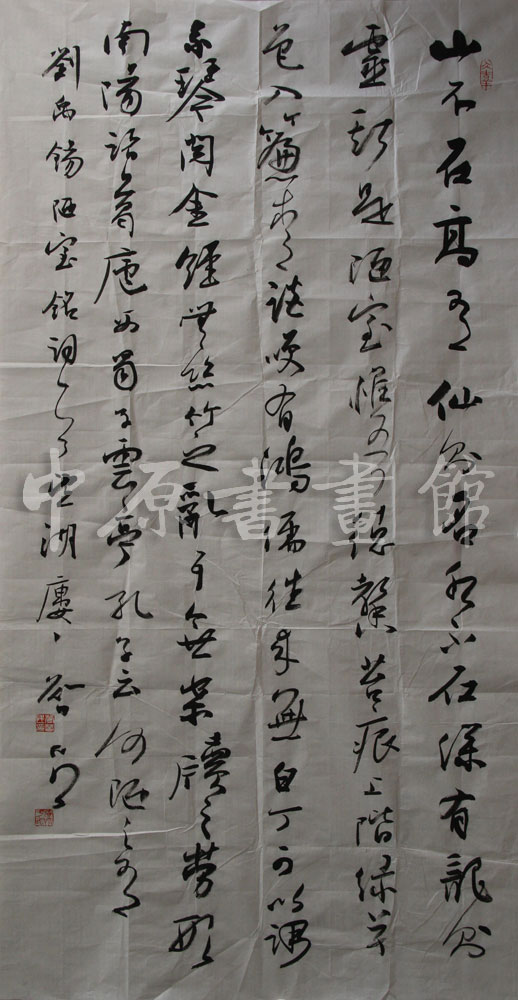 山不在高有仙則名水不在深有龍則
靈斯是陋室惟吾德馨苔痕上階綠草
色入簾青談笑有鴻儒往來無白丁可以調
素琴閱金經無絲竹之亂耳無案牘之勞形
南陽諸葛廬西蜀子雲亭孔子云何陋之有
劉禹錫陋室銘詞 湖廔
中原書畫館